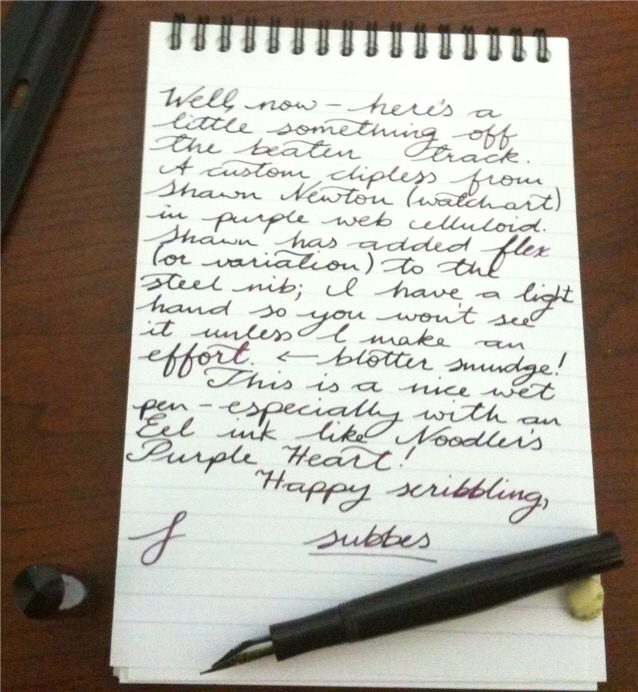 Well, now - here's a
little something off
the beaten track.
A custom clipless from
Shawn Newton (watchart)
in purple web celluloid.
Shawn has added flex
(or variation) to the
steel nib; I have a light
hand so you won't see
it unless I make an
effort. ← blotter smudge!
This is a nice wet
pen - especially with an
Eel ink like Noodler's
Purple Heart!
Happy scribbling,
subbes